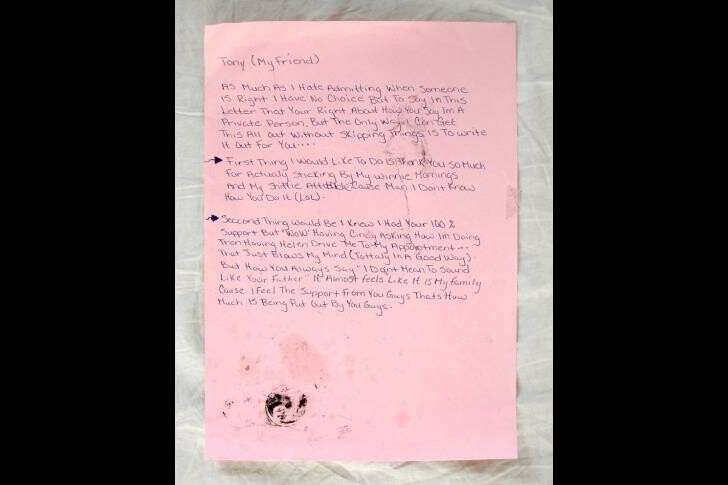 Tony (My Friend)
As Much As I Hate Admitting When Someone
Is Right I Have No Choice But To Say In This
Letter That Your Right About How You Say Im A
Private Person, But The Only Way I Can Get
This All Out Without Skipping Things Is To Write
It Out For You....
First Thing I Would Like To Do Is Thank You So Much
For Actualy Sticking By My Winnie Mornings
And My Shittie Attitude Cause Man I Dont Know
How You Do It (LoL).
Seccond Thing Would Be I Knew I Had Your 100%
Support But "WOW" Having Cindy Asking How Im Doing
Then Having Helen Drive Me To My Appointment...
That Just Blows My Mind (Tottaly In A Good Way).
But How You Always Say "I Dont Mean To Sound
Like Your Father" It Almost feels Like It Is My family
Cause I Feel The Support From You Guys Thats How
Much Is Being Put Out By You Guys.